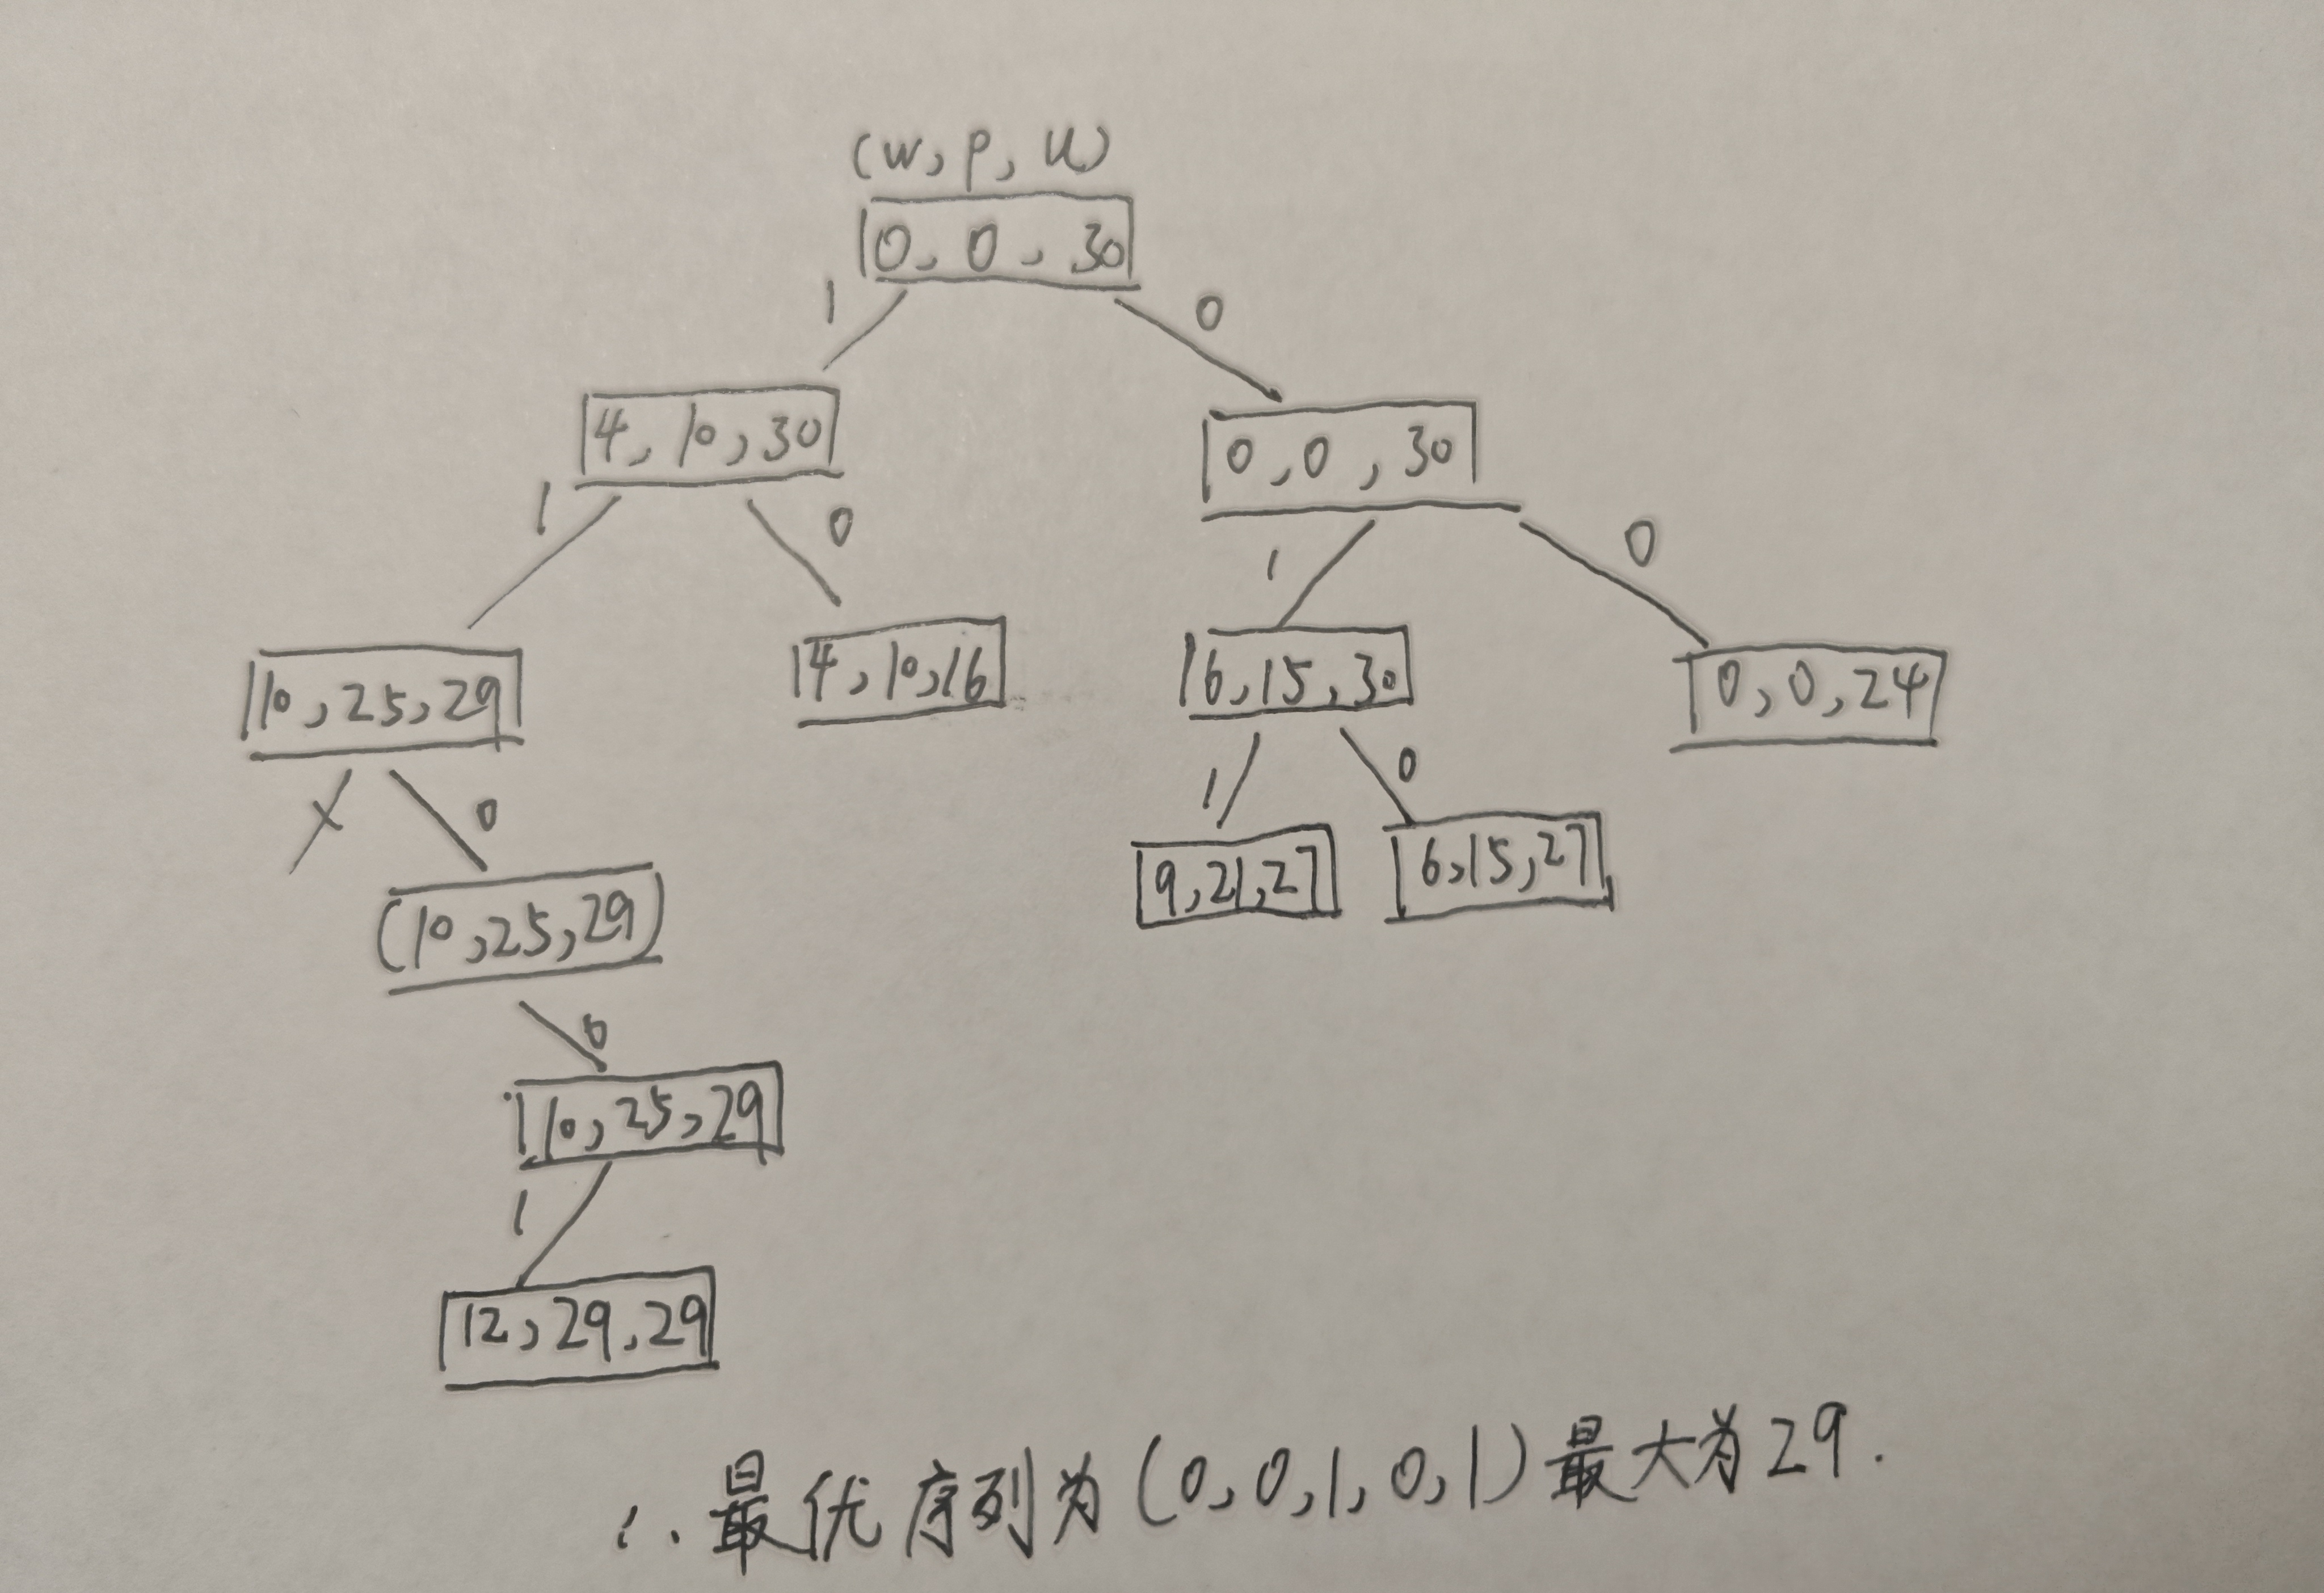 (w, p, u)
0, 0, 30
1 0
4, 10, 30 0, 0, 30
1 0 1 0
10, 25, 29 4, 10, 16 6, 15, 30 0, 0, 24
0 1 0
(10, 25, 29) 9, 21, 27 6, 15, 27
0
10, 25, 29
1
12, 29, 29
∴最优序列为(0,0,1,0,1)最大为29.